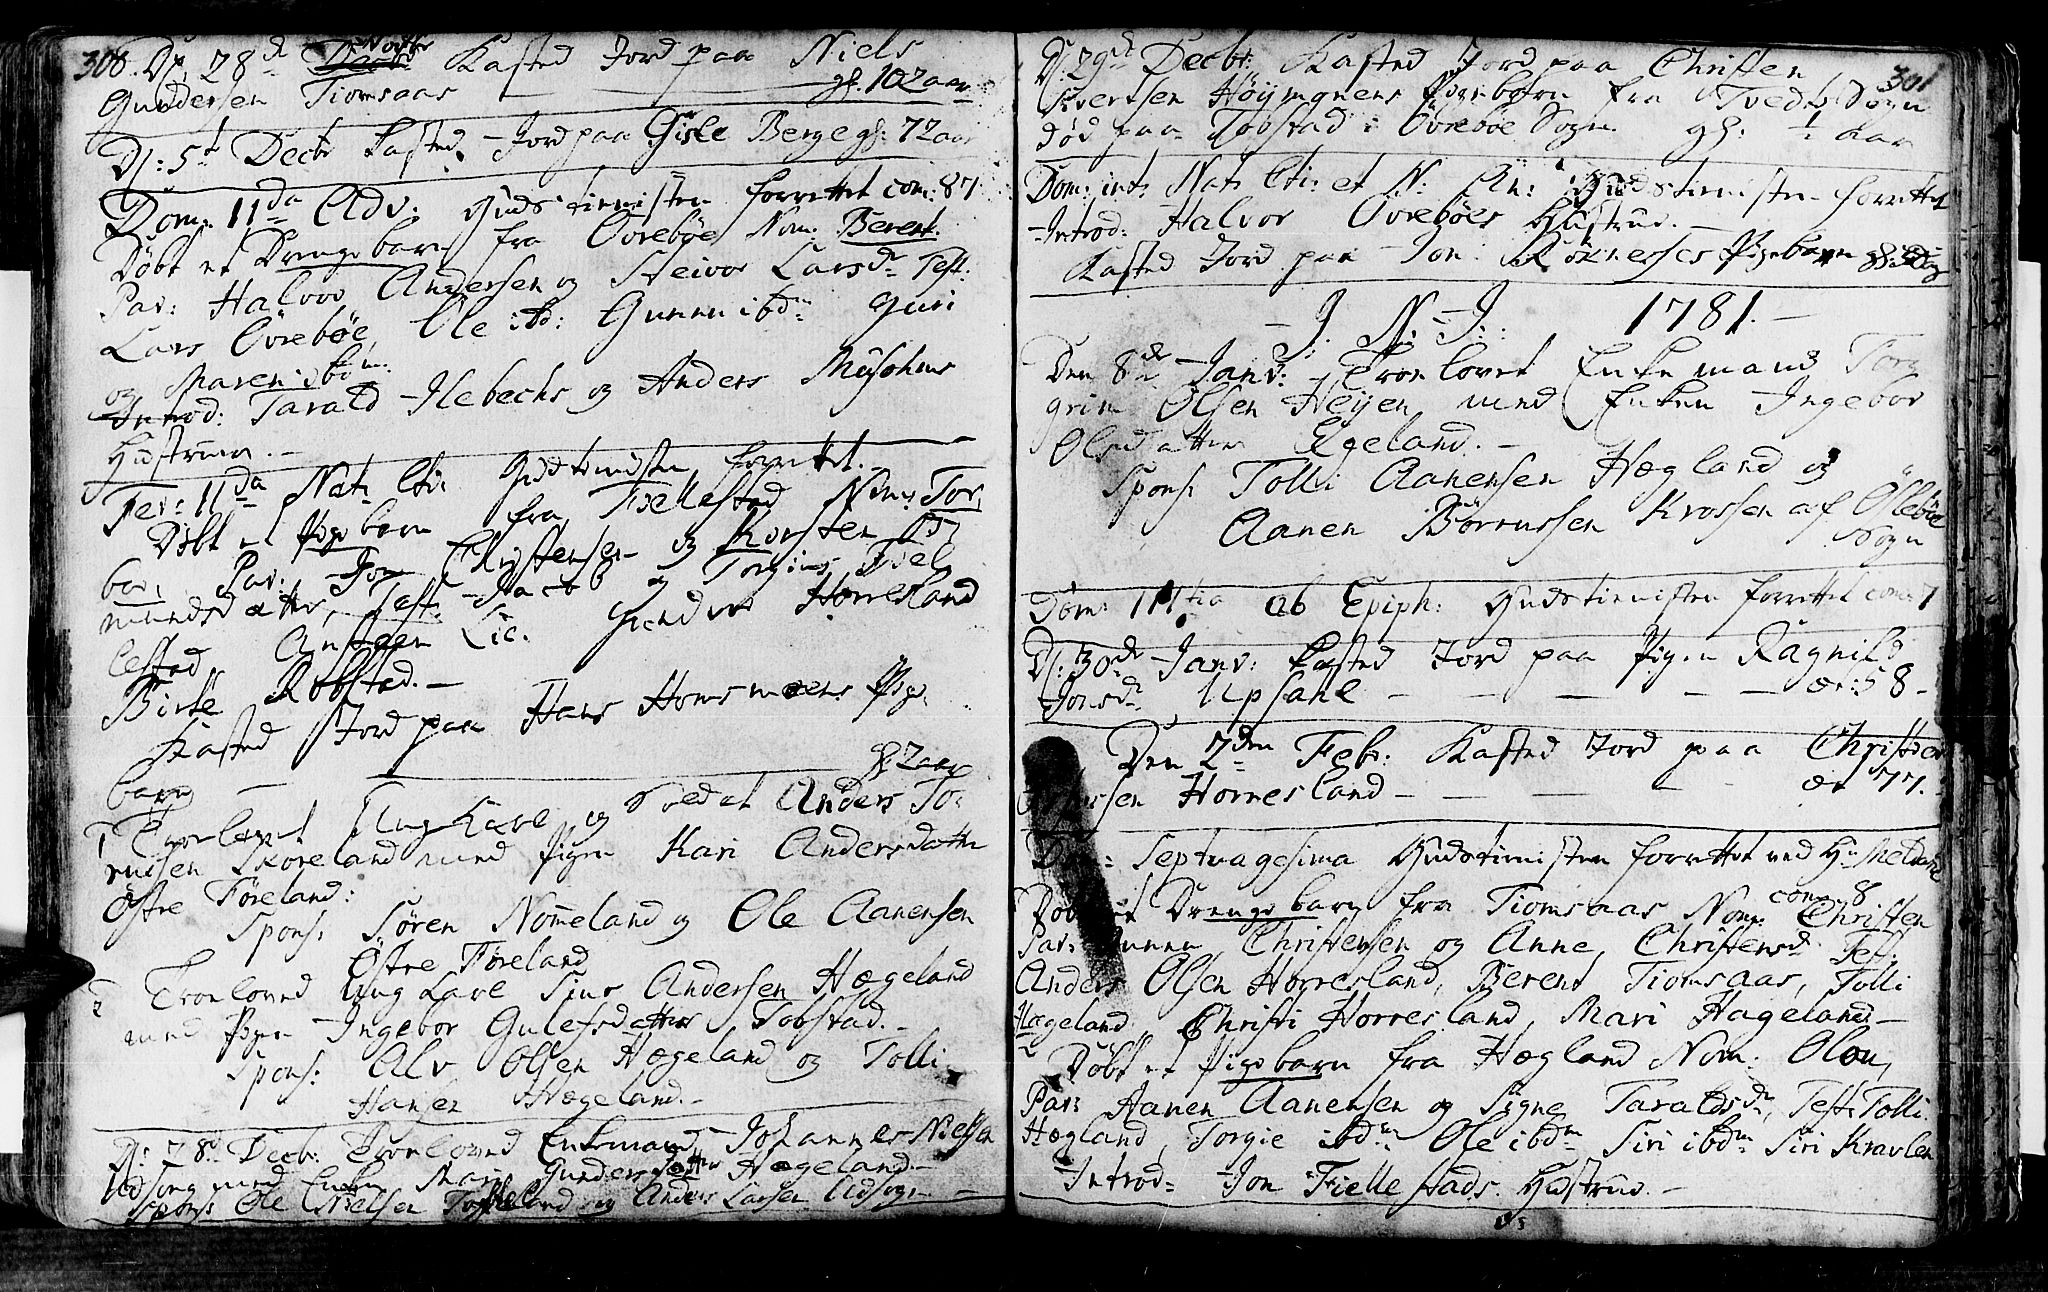 308. D: 28d Novbr Kasted Jord paa Niels
Gundersen Tiomsaas gl. 102 aar
D: 5t Decbr Kasted Jord paa Gisle Berge gl: 72 aar
Dom: 11da Adv: Gudstienisten forrettet com: 87
Døbt et Drengebarn fra Øvrebøe Nom: Berent.
Par: Halvor Andersen og Steivor Larsdr Test:
Lars Øvrebøe, Ole ibd: Gunnu ibdm Guri
og Maren ibdm.
Introd: Tarald Ilebechs og Anders
Hustruer.
Fer: 11da Nat: Chr: Gudstienisten forrettet.
Døbt et Pigebarn fra Fiellestad Nom: Tor
bor, Par: Jon Christensen og Kersten
mundsdatter, Test: Jacob og Torgius Fiel
lestad Gunder Horresland
Birte Robstad.
Kasted Jord paa Hans Homsmoens Pige
barn gl. 2 aar
1 Troelovet Ung Karl og Soldat Anders To
Skoreland med Pigen Kari Andersdatter
Østre Føreland:
Spons: Søren Nomeland og Ole Aanensen
Østre Føreland
2 Troeloved Ung Karl Andersen Hægeland
med Pigen Ingebor Gulefsdatter Tobstad.
Spons: Alv Olsen Hægeland og Tolli
Hansen Hægeland.
D: 28d Decb: Troeloved Enkemand Johannes Nielsen
Udsogn med Enken Mari Gundersdatter Hægeland
Spons: Ole Nielsen og Anders Larsen Udsogn
301
D: 29de Decbr: Kasted Jord paa Christen
Sivertsen Høymyrens fra Tvedt Sogn
død paa Tobstad i Øvrebøe Sogn gl: ½ aar
Dom: int: Nat: Chr: et N: An: Gudstienisten forrettet
Introd: Halvor Øvrebøes Hustrue.
Kasted Jord paa Jon Røinesses Pigebarn
J. N. J. 1781.
Den 8de Janv: Troelovet Enkemand Torg
grim Olsen Heyen med Enken Ingebor
Olsdatter Egeland.
Spons: Tolli Aanensen Hægland og
Aanen Børrussen Krossen af Øslebøe
Sogn
Dom: 111tia ab Epiph: Gudstienisten forrettet com: 7
D: 30de Janv: Kasted Jord paa Pigen Ragnild
Jonsdr Upsahl æt: 58
Den 2den Feb: Kasted Jord paa Christen
Horresland æt 77.
Dom: Septuagesima Gudstienisten forrettet ved Hr Meldahl
com: 8
Døbt et Drengebarn fra Tiomsaas Nom: Christen
Par: Gunnu Christensen og Anne Christensdr Test:
Anders Olsen Horresland, Berent Tiomsaas, Tolli
Hægeland, Christi Horresland, Mari Hægeland
2 Døbt et Pigebarn fra Hægland Nom: Olou,
Par: Aanen Aanensen og Signe Taraldsdr, Test: Tolli
Hægland, Torgie ibdm Ole ibdm Siri ibdm Siri Kravlen
Introd: Jon Fiellestads Hustrue.